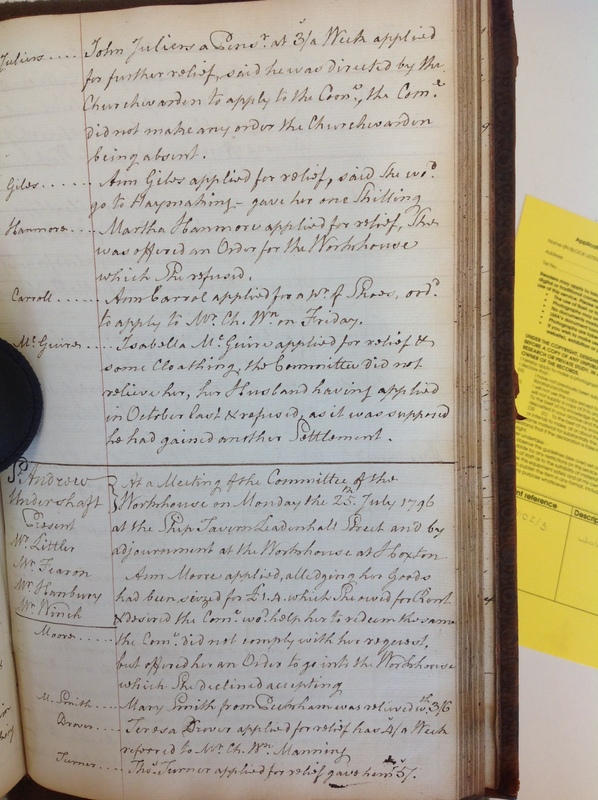 Juliers .... John Juliers a Pensr. at 3/ a Week applied
for further relief, said he was directed by the
Churchwarden to apply to the Come., the Come.
did not make any order the Churchwarden
being absent.
Giles ...... Ann Giles applied for relief, said She wod.
go to Haymaking - gave her one Shilling
Hanmore .... Martha Hanmore applied for relief, She
was offered an Order for the Workhouse
which She refused.
Carroll ...... Ann Carrol applied for a pr. of Shoes, ord.
to apply to Mr. Ch. Wn. on Friday.
Mc. Guires .... Isabella Mc. Guire applied for relief &
some Cloathing, the Committee did not
relieve her, her Husband having applied
in October last & refused, as it was supposed
he had gained another Settlement.
St. Andrew
Undershaft
Present
Mr. Littler
Mr. Fearon
Mr. Hanbury
Mr. Winch
At a Meeting of the Committee of the
Workhouse on Monday the 25th. July 1796
at the Ship Tavern Leadenhall Street and by
adjournment at the Workhouse at Hoxton
Ann Moore applied, alledging her Goods
had been seized for £1.4. which She owed for Rent
& desired the Come. wod. help her to redeem the same
Moore ..... the Come. did not comply with her request,
but offered her an Order to go into the Workhouse
which She declined accepting
M. Smith .... Mary Smith from Peckham was relieved wth. 3/6
Drover ..... Teresa Drover applied for relief has 4/ a Week
referred to Mr. Ch. Wn. Manning
Turner .... Thos. Turner applied for relief gave him 5/.
Applicatio
Name (IN BLOCK LETTERS
Address
UNDER THE COPYRIGHT, DESIGNS
BEFORE A COPY OF ANY
RESEARCH OR PRIVATE STUDY
OWNER OF THE RECORDS
nt reference
Descri